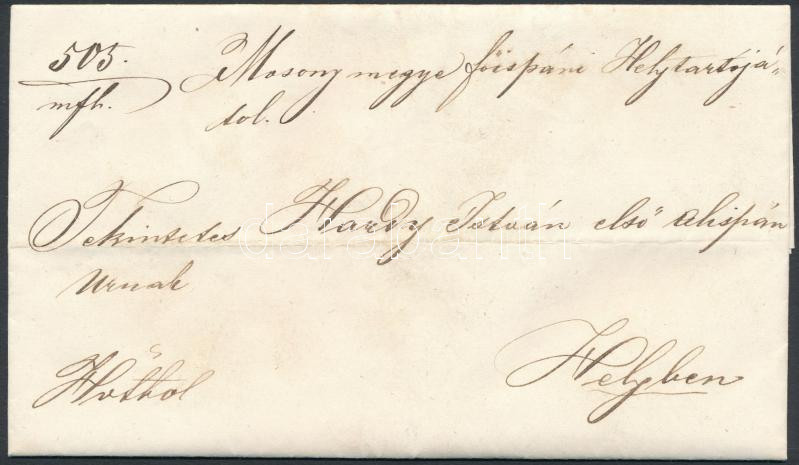 505.
mfh.
Mosony megye főispáni Helytartójá-
tol.
Tekintetes Hardy István első alispán
Urnak
Helyben
darabanth